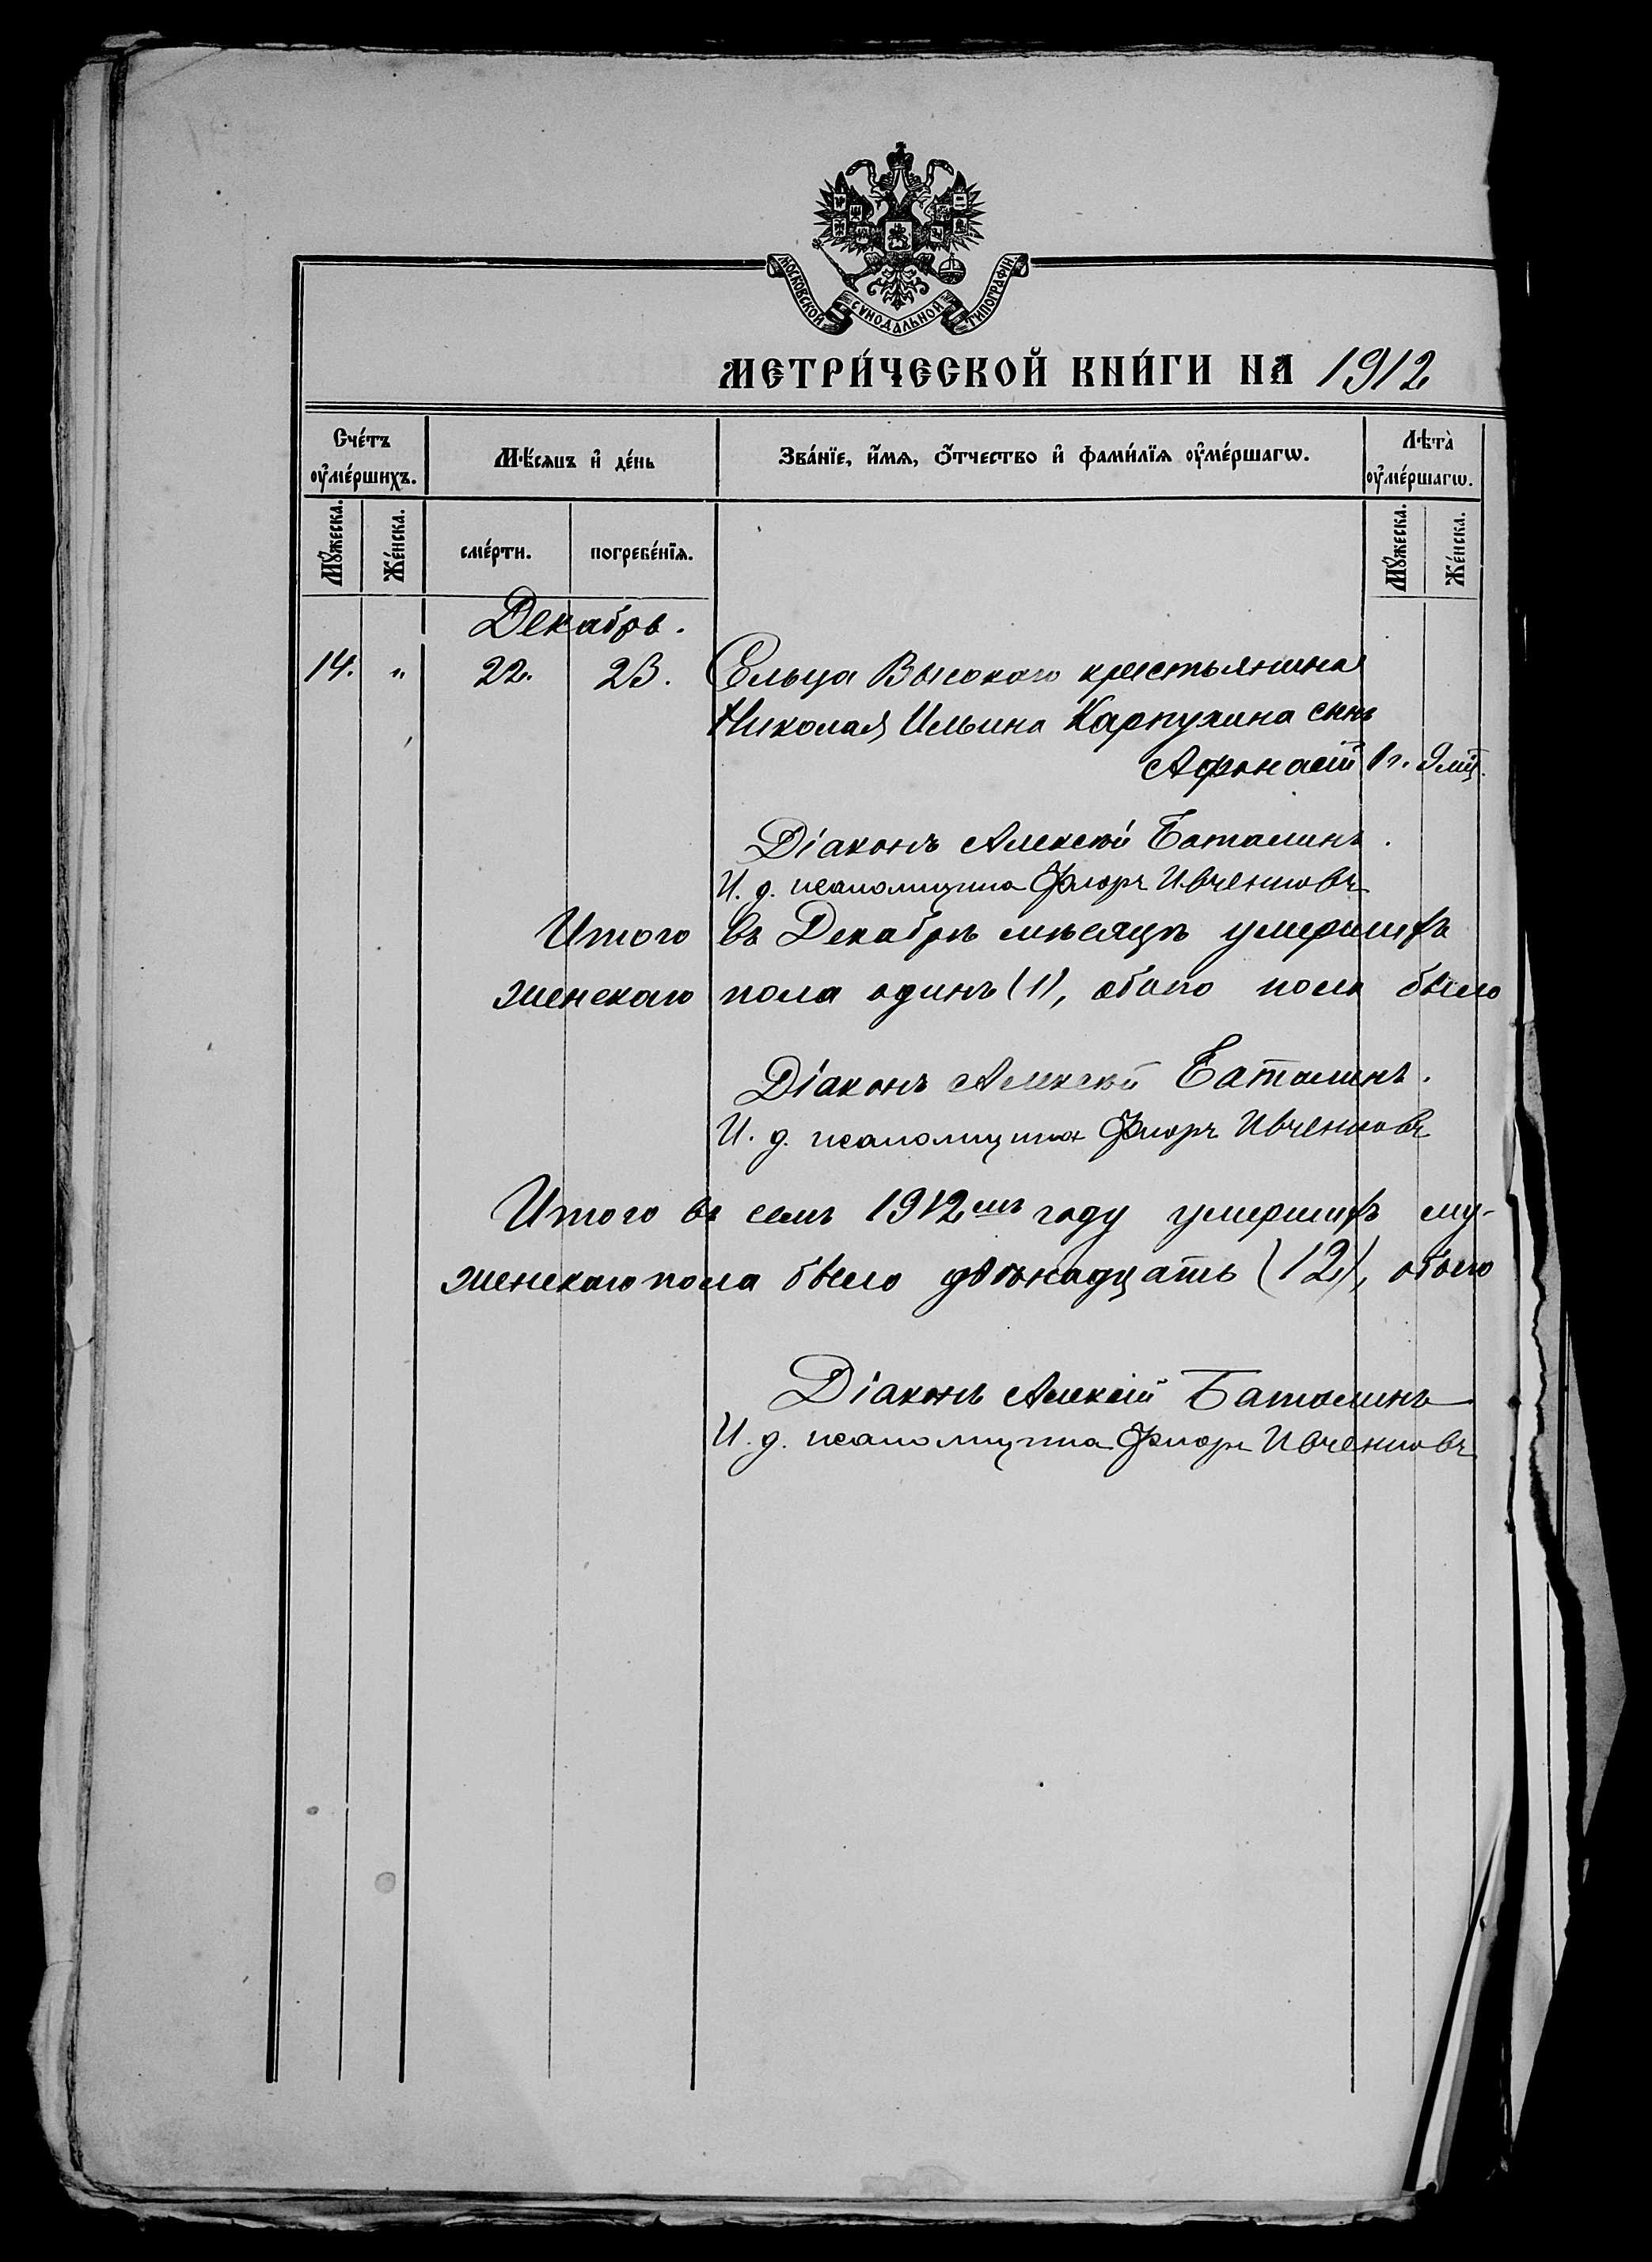 МОСКОВСКОЙ СѴНОДАЛЬНОЙ ТИПОГРАФІИ
МЕТРИ́ЧЕСКОЙ КНИ́ГИ НА 1912
Сче́тъ оу҆ме́ршихъ.
Мѣ́сяцъ и҆ де́нь
Зва́нїе, и҆́мѧ, ѻ҆́тчество и҆ фами́лїѧ оу҆ме́ршагѡ.
Лѣта̀ оу҆ме́ршагѡ.
Мꙋ́жеска.
Же́нска.
сме́рти.
погребе́нїѧ.
Мꙋ́жеска.
Же́нска.
Декабрь.
14. " 22. 23. Ельца Высокаго крестьянина
Николая Ильина Карпухина сынъ
Афонасій 1 г. 9 мц.
Діаконъ Алексій Баталинъ.
И. д. псаломщика Флоръ Ивченковъ
Итого въ Декабрѣ мѣсяцѣ умершихъ
женскаго пола одинъ (1), обоего пола было
Діаконъ Алексій Баталинъ.
И. д. псаломщика Флоръ Ивченковъ
Итого въ семъ 1912мъ году умершихъ му-
женскаго пола было двѣнадцать (12), обоего
Діаконъ Алексій Баталинъ
И. д. псаломщика Флоръ Ивченковъ